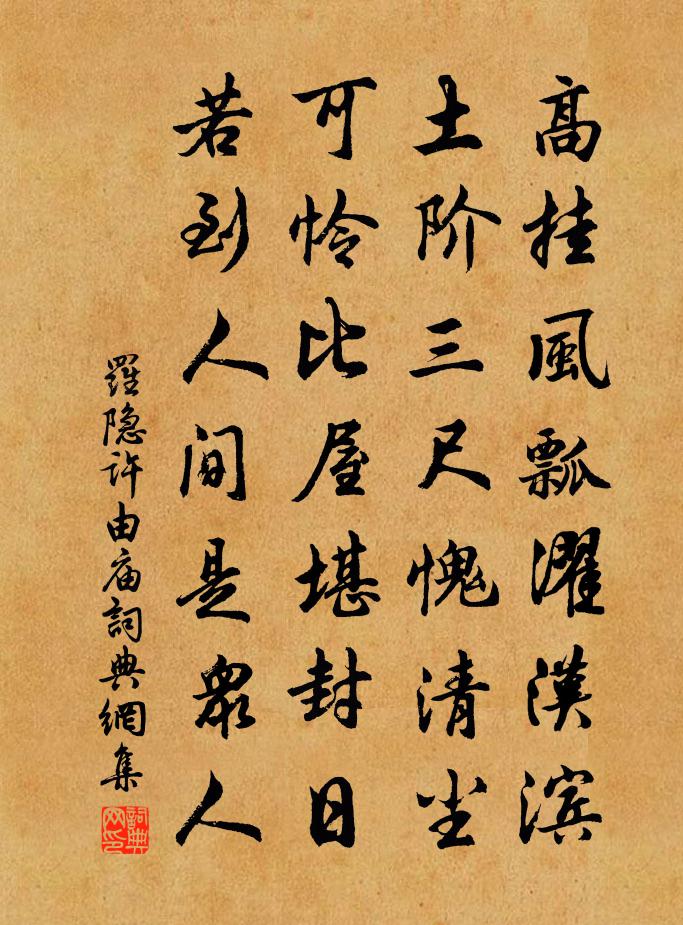 高挂風瓢濯漢滨
土阶三尺愧清尘
可怜比屋堪封日
若到人间是眾人
羅隐许由庙詞典網集
詞典网印